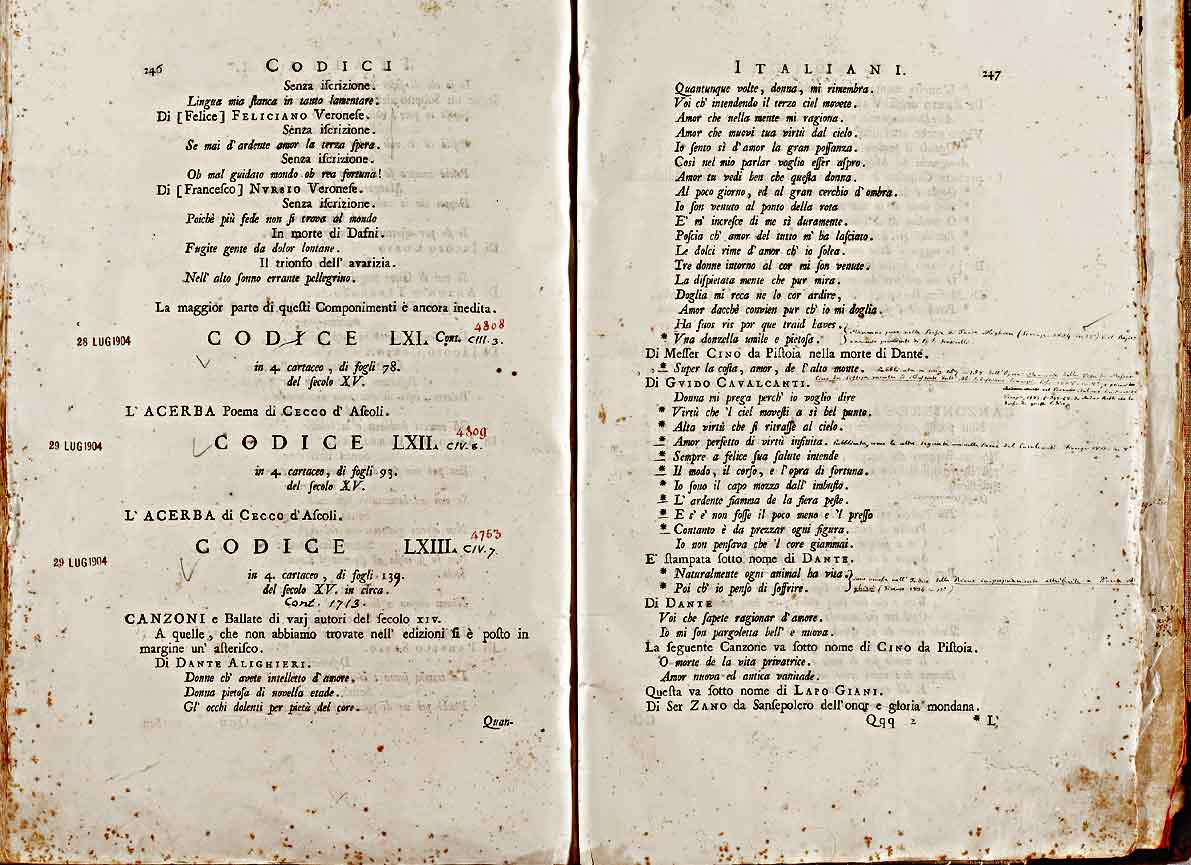 246
CODICI
Senza iſcrizione.
Lingua mia ſtanca in tanto lamentare.
Di [Felice] FELICIANO Veroneſe.
Senza iſcrizione.
Se mai d'ardente amor la terza ſpera.
Senza iſcrizione.
Ob mal guidato mondo ob rea fortuna!
Di [Franceſco] NVRSIO Veroneſe.
Senza iſcrizione.
Poichè più fede non ſi trova al mondo
In morte di Dafni.
Fugite gente da dolor lontane.
Il trionfo dell' avarizia.
Nell' alto ſonno errante pellegrino.
La maggior parte di queſti Componimenti è ancora inedita.
28 LUG 1904
CODICE LXI. Cont. CIII.3.
4808
in 4. cartaceo, di fogli 78.
del ſecolo XV.
L' ACERBA Poema di CECCO d' Aſcoli.
29 LUG 1904
CODICE LXII. CIV.6.
4809
in 4. cartaceo, di fogli 93.
del ſecolo XV.
L' ACERBA di CECCO d'Aſcoli.
29 LUG 1904
CODICE LXIII. CIV.7.
4753
in 4. cartaceo, di fogli 139.
del ſecolo XV. in circa.
Cont. 1713.
CANZONI e Ballate di varj autori del ſecolo XIV.
A quelle, che non abbiamo trovate nell' edizioni ſi è poſto in
margine un' aſteriſco.
Di DANTE ALIGHIERI.
Donne ch' avete intelletto d'amore.
Donna pietoſa di novella etade.
Gl' occhi dolenti per pietà del core.
Quan-
ITALIANI.
247
Quantunque volte, donna, mi rimembra.
Voi ch' intendendo il terzo ciel movete.
Amor che nella mente mi ragiona.
Amor che muovi tua virtù dal cielo.
Io ſento sì d'amor la gran poſſanza.
Così nel mio parlar voglio eſſer aſpro.
Amor tu vedi ben che queſta donna.
Al poco giorno, ed al gran cerchio d'ombra.
Io ſon venuto al ponto della rota
E' m' increſce di me sì duramente.
Poſcia ch' amor del tutto m' ha laſciato.
Le dolci rime d'amor ch' io ſolea.
Tre donne intorno al cor mi ſon venute.
La diſpietata mente che pur mira.
Doglia mi reca ne lo cor ardire,
Amor dacchè convien pur ch' io mi doglia.
Ha ſuos ris por que traid haves.
* Vna donzella umile e pietoſa.
Di Meſſer CINO da Piſtoia nella morte di Dante.
* Super la coſta, amor, de l'alto monte.
Di GVIDO CAVALCANTI.
Donna mi prega perch' io voglio dire
* Virtù che 'l ciel moveſti a sì bel punto.
* Alta virtù che ſi ritraſſe al cielo.
* Amor perfetto di virtù infinita.
* Sempre a felice ſua ſalute intende
* Il modo, il corſo, e l'opra di fortuna.
* Io ſono il capo mozzo dall' imbuſto.
* L' ardente fiamma de la fiera peſte.
* E s' e' non foſſe il poco meno e 'l preſſo
* Contanto è da prezzar ogni figura.
Io non penſava che 'l core giammai.
E' ſtampata ſotto nome di DANTE.
* Naturalmente ogni animal ha vita.
* Poi ch' io penſo di ſoffrire.
Di DANTE
Voi che ſapete ragionar d'amore.
Io mi ſon pargoletta bell' e nuova.
La ſeguente Canzone va ſotto nome di CINO da Piſtoia.
'O morte de la vita privatrice.
Amor nuova ed antica vanitade.
Queſta va ſotto nome di LAPO GIANI.
Di Ser ZANO da Sanſepolcro dell'onor e gloria mondana.
Qqq 2
* L'